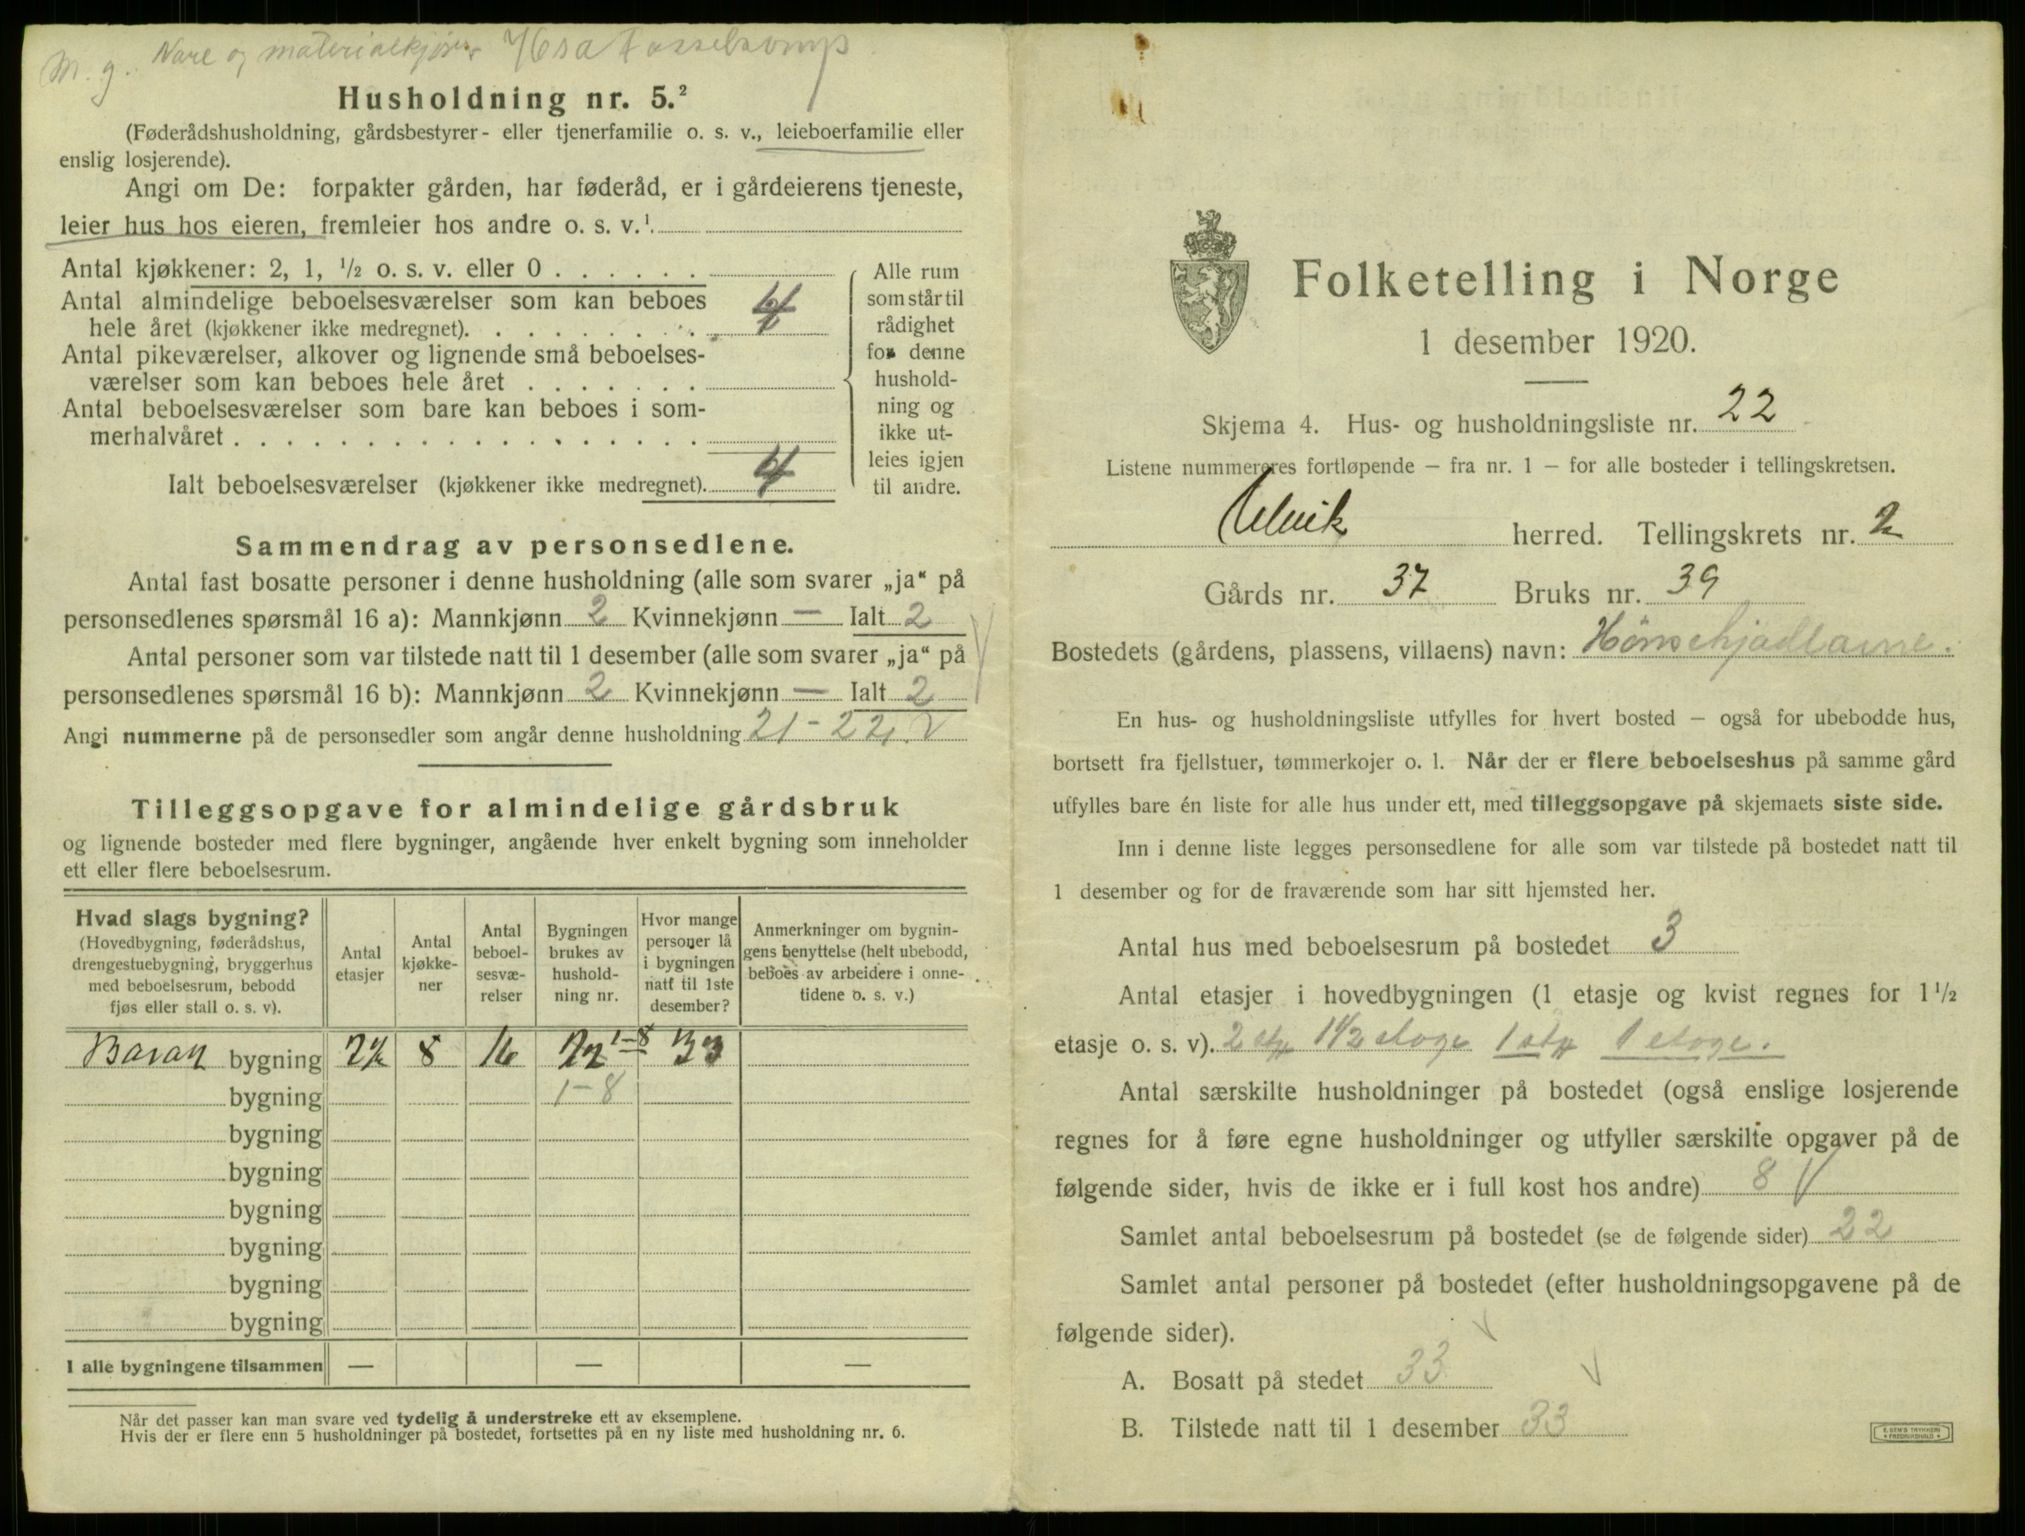 M. g. Vare og materialkjører
Husholdning nr. 5.²
(Føderådshusholdning, gårdsbestyrer- eller tjenerfamilie o. s. v., leieboerfamilie eller
enslig losjerende).
Angi om De: forpakter gården, har føderåd, er i gårdeierens tjeneste,
leier hus hos eieren, fremleier hos andre o. s. v.¹
Antal kjøkkener: 2, 1, ½ o. s. v. eller 0
Antal almindelige beboelsesværelser som kan beboes
hele året (kjøkkener ikke medregnet). 4
Antal pikeværelser, alkover og lignende små beboelses-
værelser som kan beboes hele året
Antal beboelsesværelser som bare kan beboes i som-
merhalvåret
Ialt beboelsesværelser (kjøkkener ikke medregnet). 4
Alle rum
som står til
rådighet
for denne
hushold-
ning og
ikke ut-
leies igjen
til andre.
Sammendrag av personsedlene.
Antal fast bosatte personer i denne husholdning (alle som svarer „ja“ på
personsedlenes spørsmål 16 a): Mannkjønn 2 Kvinnekjønn — Ialt 2
Antal personer som var tilstede natt til 1 desember (alle som svarer „ja“ på
personsedlenes spørsmål 16 b): Mannkjønn 2 Kvinnekjønn — Ialt 2
Angi nummerne på de personsedler som angår denne husholdning 21 - 22
Tilleggsopgave for almindelige gårdsbruk
og lignende bosteder med flere bygninger, angående hver enkelt bygning som inneholder
ett eller flere beboelsesrum.
Hvad slags bygning?
(Hovedbygning, føderådshus,
drengestuebygning, bryggerhus
med beboelsesrum, bebodd
fjøs eller stall o. s. v).
Antal
etasjer
Antal
kjøkke-
ner
Antal
beboel-
sesvæ-
relser
Bygningen
brukes av
hushold-
ning nr.
Hvor mange
personer lå
i bygningen
natt til 1ste
desember?
Anmerkninger om bygnin-
gens benyttelse (helt ubebodd,
beboes av arbeidere i onne-
tidene o. s. v.)
bygning 8 16 1-8 33
bygning 1-8
bygning
bygning
bygning
bygning
bygning
bygning
I alle bygningene tilsammen — — —
Når det passer kan man svare ved tydelig å understreke ett av eksemplene.
Hvis der er flere enn 5 husholdninger på bostedet, fortsettes på en ny liste med husholdning nr. 6.
Folketelling i Norge
1 desember 1920.
Skjema 4. Hus- og husholdningsliste nr. 22
Listene nummereres fortløpende – fra nr. 1 – for alle bosteder i tellingskretsen.
Ulvik herred. Tellingskrets nr. 2
Gårds nr. 37 Bruks nr. 39
Bostedets (gårdens, plassens, villaens) navn:
En hus- og husholdningsliste utfylles for hvert bosted – også for ubebodde hus,
bortsett fra fjellstuer, tømmerkojer o. l. Når der er flere beboelseshus på samme gård
utfylles bare én liste for alle hus under ett, med tilleggsopgave på skjemaets siste side.
Inn i denne liste legges personsedlene for alle som var tilstede på bostedet natt til
1 desember og for de fraværende som har sitt hjemsted her.
Antal hus med beboelsesrum på bostedet 3
Antal etasjer i hovedbygningen (1 etasje og kvist regnes for 1½
etasje o. s. v). 2 stk 1½ etage 1 stk 1 etage.
Antal særskilte husholdninger på bostedet (også enslige losjerende
regnes for å føre egne husholdninger og utfyller særskilte opgaver på de
følgende sider, hvis de ikke er i full kost hos andre) 8
Samlet antal beboelsesrum på bostedet (se de følgende sider) 22
Samlet antal personer på bostedet (efter husholdningsopgavene på de
følgende sider).
A. Bosatt på stedet 33
B. Tilstede natt til 1 desember 33
E. SEM'S TRYKKERI
FREDRIKSHALD